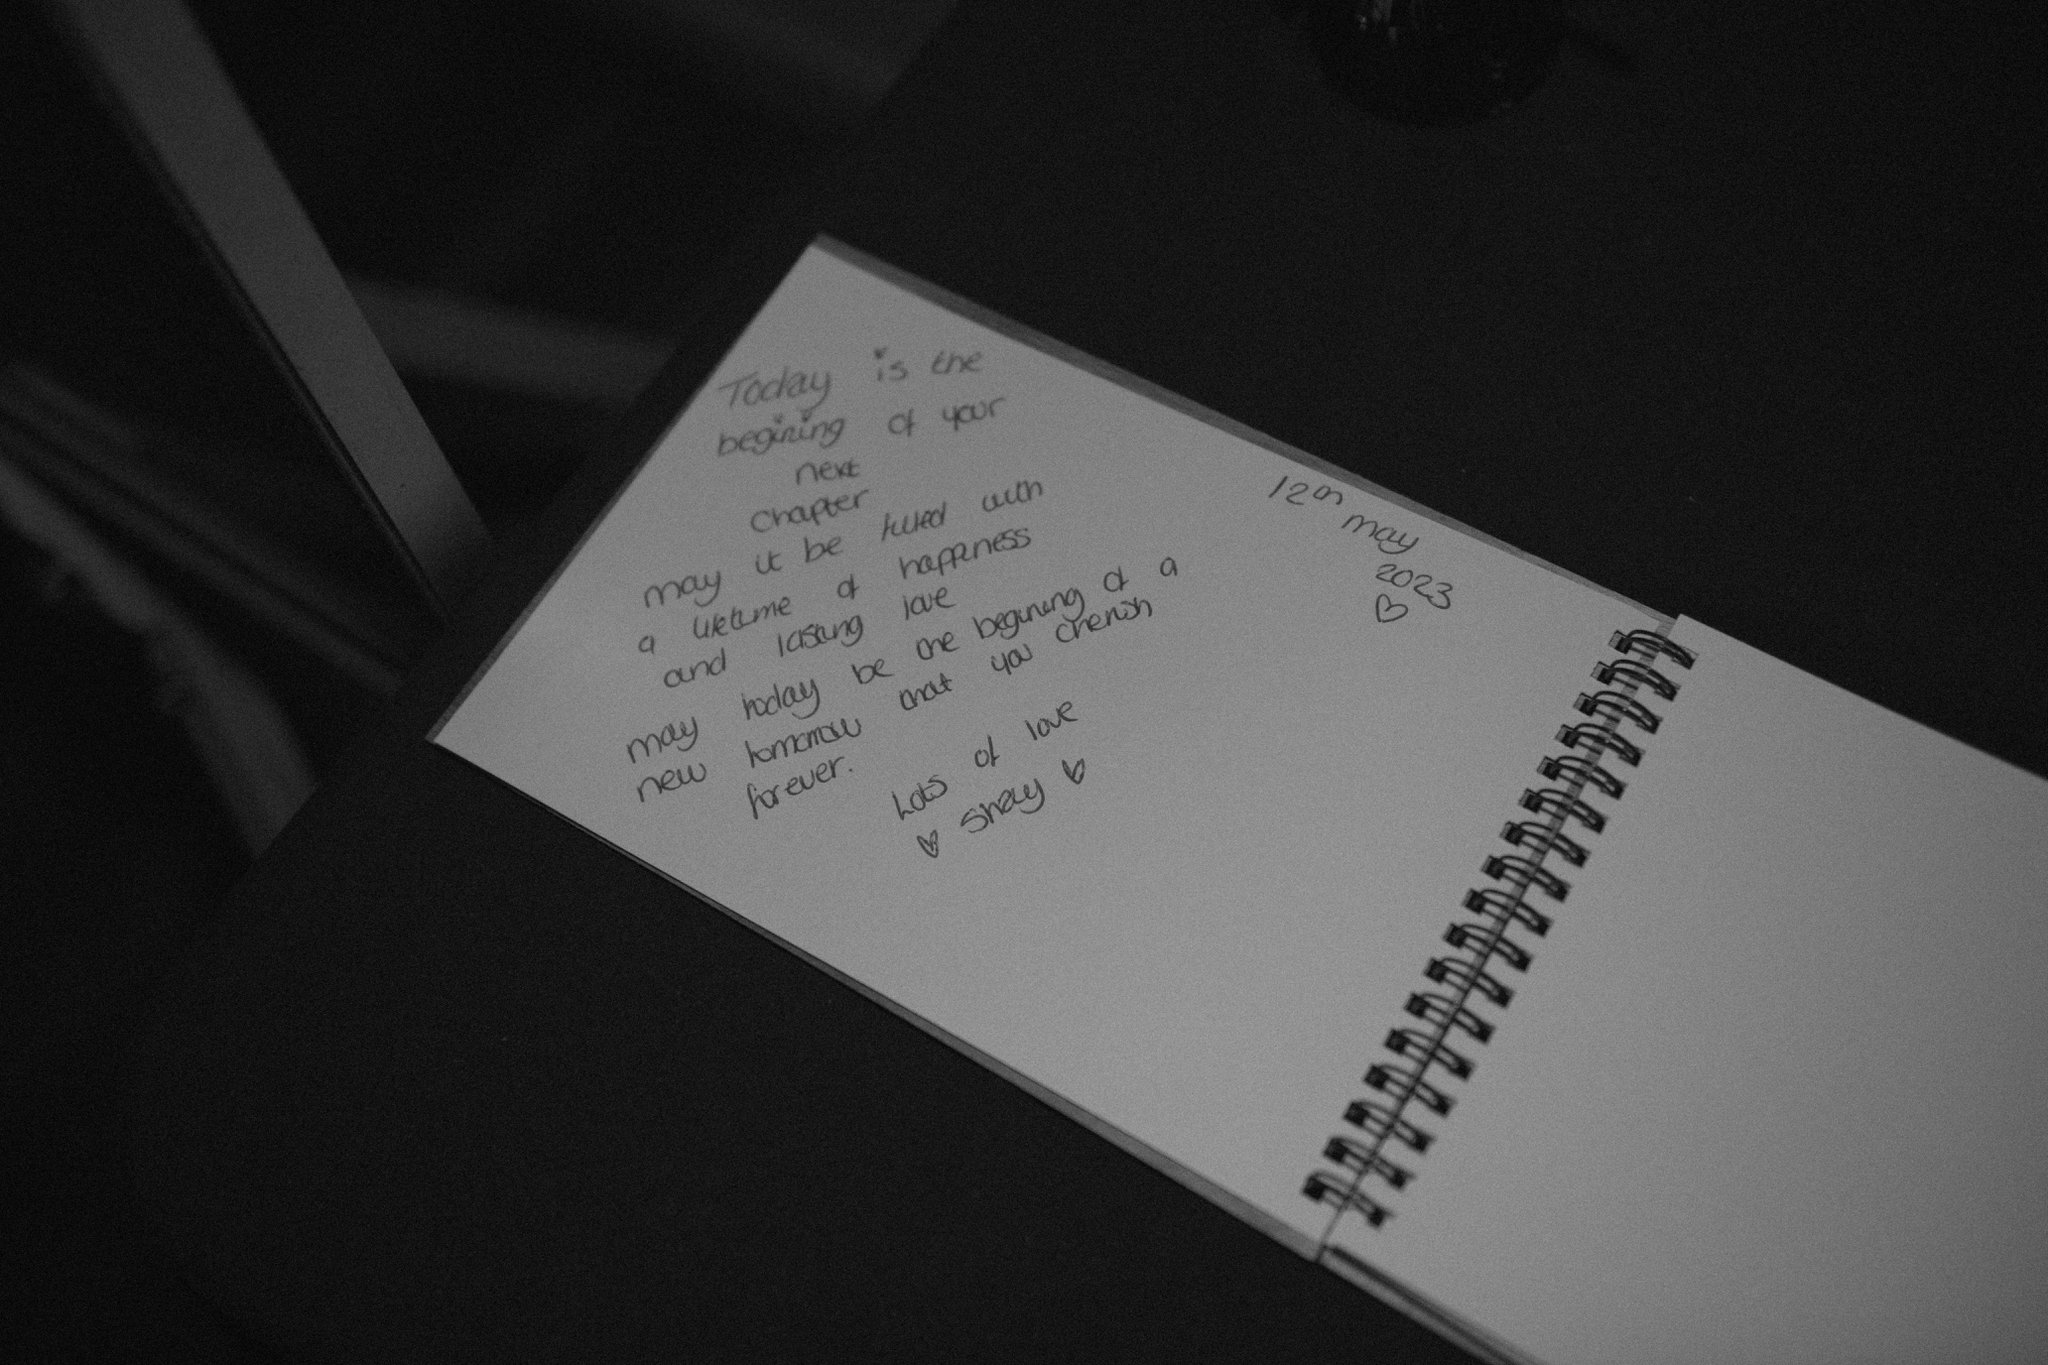 Today is the
begining of your
next
chapter
may it be filled with
a lifetime of happiness
and lasting love
may today be the begining of a
new tomorrow that you cherish
forever.
Lots of love
♡ Shay ♡
12th
may
2023
♡